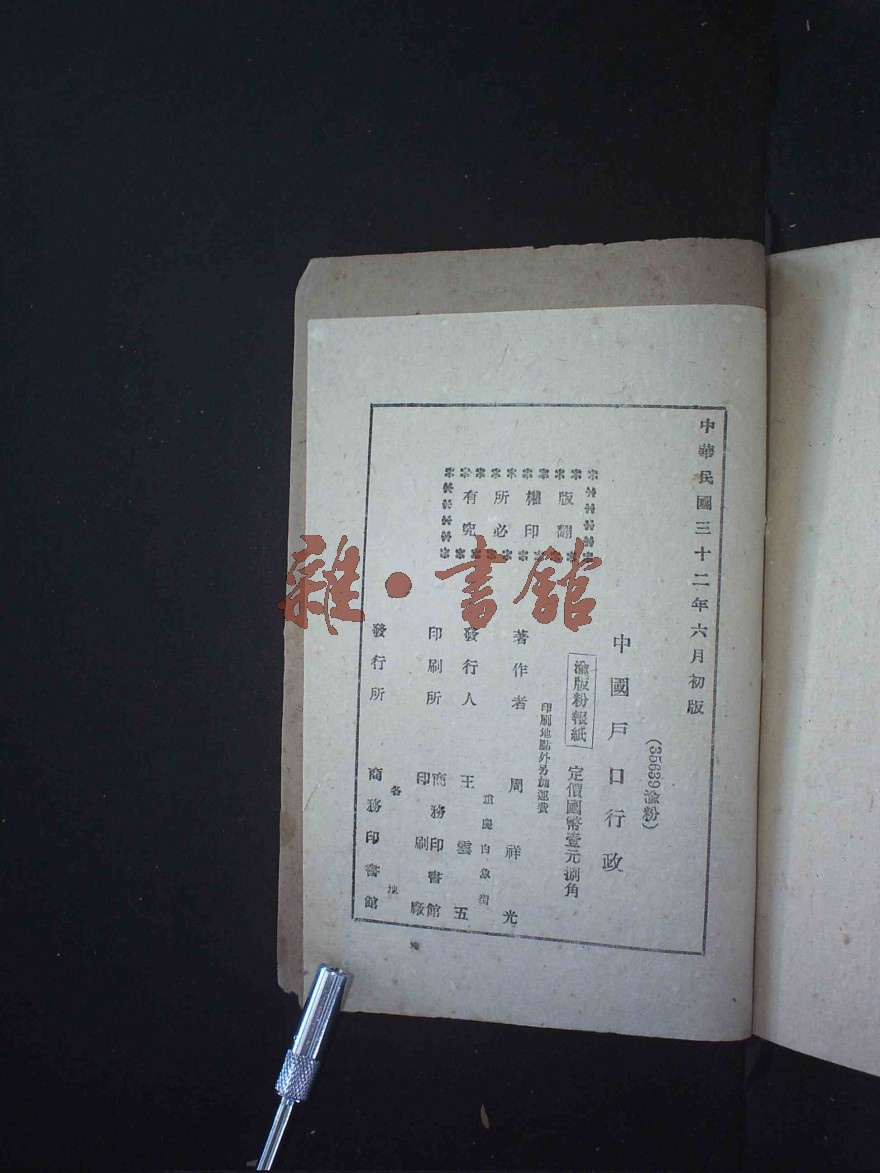 中華民國三十二年六月初版
(35639渝粉)
中國戶口行政
渝版粉報紙
定價國幣壹元捌角
印刷地點外另加運費
版權所有
翻印必究
著作者 周祥光
重慶白象街
發行人 王雲五
印刷所 商務印書館印刷廠
各地
發行所 商務印書館
雜·書館